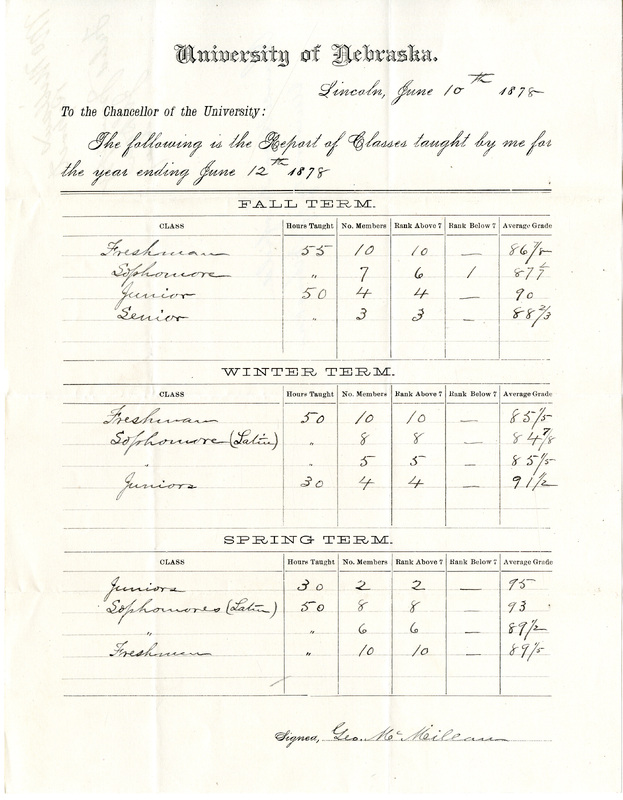 University of Nebraska.
Lincoln, June 10th 1878
To the Chancellor of the University:
The following is the Report of Classes taught by me for
the year ending June 12th 1878
FALL TERM.
CLASS Hours Taught No. Members Rank Above 7 Rank Below 7 Average Grade
Freshman 55 10 10 —
Sophomore " 7 6 1
Junior 50 4 4 — 90
Senior " 3 3 — 88 2/3
WINTER TERM.
CLASS Hours Taught No. Members Rank Above 7 Rank Below 7 Average Grade
Freshman 50 10 10 — 85 1/5
Sophomore (Latin) " 8 8 — 84 7/8
" " 5 5 — 85 1/5
Juniors 30 4 4 — 91 1/2
SPRING TERM.
CLASS Hours Taught No. Members Rank Above 7 Rank Below 7 Average Grade
Juniors 30 2 2 — 95
Sophomores (Latin) 50 8 8 — 93
" " 6 6 — 89 1/2
Freshmen " 10 10 — 89 1/5
Signed, Geo. McMillan